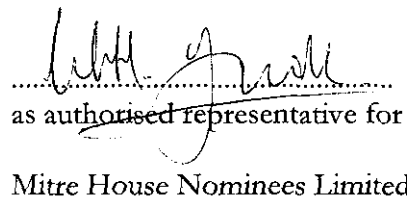 as authorised representative for
Mitre House Nominees Limited